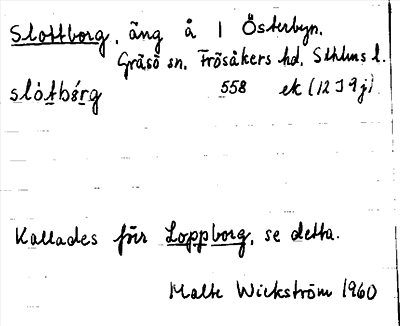 Slottborg, äng å 1 Österbyn.
Gräsö sn. Frösåkers hd, Sthlms l.
slòtbórg 558 ek (12 I 9 j)
Kallades förr Loppborg, se detta.
Malte Wickström 1960